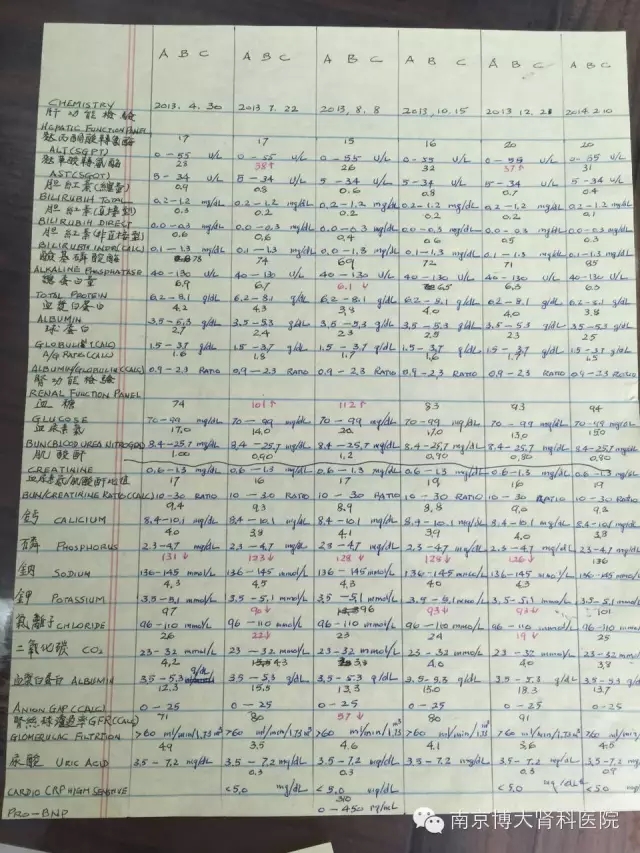 A B C A B C A B C A B C A B C A B C
CHEMISTRY 2013.4.30 2013 7.22 2013,8.8 2013,10.15 2013 12.28 2014 2.10
肝功能檢驗
HEPATIC FUNCTION PANEL
麩丙酮酸轉氨酶 17 17 15 16 20 20
ALT(SGPT) 0-55 U/L 0-55 U/L 0-55 U/L 0-55 U/L 0-55 U/L 0-55 U/L
23 38↑ 26 32 37↑ 31
AST(SGOT) 5-34 U/L 5-34 U/L 5-34 U/L 5-34 U/L 5-34 U/L 5-34 U/L
0.9 0.8 0.6 0.8 0.7 0.4
BILIRUBIN TOTAL 0.2-1.2 mg/dL 0.2-1.2 mg/dL 0.2-1.2 mg/dL 0.2-1.2 mg/dL 0.2-1.2 mg/dL 0.2-1.2 mg/dL
0.3 0.2 0.2 0.2 0.2 0.1
BILIRUBIN DIRECT 0.0-0.3 mg/dL 0.0-0.3 mg/dL 0.0-0.3 mg/dL 0.0-0.3 mg/dL 0.0-0.3 mg/dL 0.0-0.3
0.6 0.6 0.4 0.6 0.5 0.3
BILIRUBIN INDR(CALC) 0.1-1.3 mg/dL 0.1-1.3 mg/dL 0.0-1.3 mg/dL 0.1-1.3 mg/dL 0.1-1.3 mg/dL 0.1-1.3 mg/dL
78 74 60 72 71 85
ALKALINE PHOSPHATASE 40-130 U/L 40-130 U/L 40-130 U/L 40-130 U/L 40-130 U/L 40-130 U/L
總蛋白量 6.9 6.7 6.1↓ 6.5 6.3 6.3
TOTAL PROTEIN 6.2-8.1 g/dL 6.2-8.1 g/dL 6.2-8.1 g/dL 6.2-8.1 g/dL 6.2-8.1 g/dL 6.2-8.1 g/dL
血漿蛋白 4.2 4.3 3.8 4.0 4.0 3.8
ALBUMIN 3.5-5.3 g/dL 3.5-53 g/dL 3.5-5.3 g/dL 3.5-5.3 g/dL 3.5-5.3 g/dL 3.5-5.3 g/dL
球蛋白 2.7 2.4 2.3 2.5 23 25
1.5-3.7 g/dL 1.5-3.7 g/dL 1.5-3.7 g/dL 1.5-3.7 g/dL 1.5-3.7 g/dL 1.5-3.7 g/dL
A/G RATIO(CALC) 1.6 1.8 1.7 1.6 1.7 1.5
ALBUMIN/GLOBULIN(CALC) 0.9-2.3 RATIO 0.9-2.3 RATIO 0.9-2.3 RATIO 0.9-2.3 RATIO 0.9-2.3 RATIO 0.9-2.3 RATIO
腎功能檢驗
RENAL FUNCTION PANEL
血糖 74 101↑ 112↑ 83 93 94
GLUCOSE 70-99 mg/dL 70-99 mg/dL 70-99 mg/dL 70-99 mg/dL 70-99 mg/dL 70-99 mg/dL
血尿素氮 17.0 14.0 20. 17.0 13.0 15.0
8.4-25.7 mg/dL 8.4-25.7 mg/dL 8.4-25.7 mg/dL 8.4-25.7 mg/dL 8.4-25.7 mg/dL 8.4-25.7 mg/dL
肌酸酐 1.00 0.90 1.2 0.90 0.80 0.80
CREATININE 0.6-1.3 mg/dL 0.6-1.3 mg/dL 0.6-1.3 mg/dL 0.6-1.3 mg/dL 0.6-1.3 mg/dL 0.6-1.3 mg/dL
血尿素氮/肌酸酐比值 17 16 17 19 16 19
10-30 RATIO 10-30 RATIO 10-30 RATIO 10-30 RATIO 10-30 RATIO 10-30 RATIO
9.4 9.3 8.9 8.8 9.0 9.3
鈣 8.4-10.1 mg/dL 8.4-10.1 mg/dL 8.4-10.1 mg/dL 8.4-10.1 mg/dL 8.4-10.1 mg/dL 8.4-10.1 mg/dL
4.0 3.8 4.1 3.9 4.0 3.8
磷 PHOSPHORUS 2.3-4.7 mg/dL 2.3-4.7 mg/dL 2.3-4.7 mg/dL 2.3-4.7 mg/dL 2.3-4.7 mg/dL 2.3-4.7 mg/dL
131↓ 133↓ 128↓ 128↓ 126↓ 136
鈉 SODIUM 136-145 mmol/L 136-145 mmol/L 136-145 mmol/L 136-145 mmol/L 136-145 mmol/L 136-145 mmol/L
4.3 4.5 4.3 4.0 4.3
鉀 POTASSIUM 3.5-5.1 mmol/L 3.5-5.1 mmol/L 3.5-5.1 mmol/L 3.5-5.1 mmol/L 3.5-5.1 mmol/L 3.5-5.1 mmol/L
97 96 93↓ 101
氯離子 CHLORIDE 96-110 mmol/L 96-110 mmol/L 96-110 mmol/L 96-110 mmol/L 96-110 mmol/L 96-110 mmol/L
26 22↓ 23 24 19↓ 25
二氧化碳 CO₂ 23-32 mmol/L 23-32 mmol/L 23-32 mmol/L 23-32 mmol/L 23-32 mmol/L 23-32 mmol/L
4.2 4.3 3.8 4.0 40 3.8
血漿白蛋白 ALBUMIN 3.5-5.3 g/dL 3.5-5.3 g/dL 3.5-5.3 g/dL 3.5-5.3 g/dL 3.5-5.3 g/dL 3.5-5.3 g/dL
12.3 15.5 13.3 15.0 18.3 13.7
ANION GAP(CALC) 0-25 0-25 0-25 0-25 0-25 0-25
71 80 57↓ 80 91
GLOMERULAC FILTRTION >60 ml/min/1.73m² >60 ml/min/1.73m² >60 ml/min/1.73m² >60 ml/min/1.73m² >60 ml/min/1.73m² >60 ml/min/
49 3.5 4.6 4.1 3.6 4.5
尿酸 URIC ACID 3.5-7.2 mg/dL 3.5-7.2 mg/dL 3.5-7.2 mg/dL 3.5-7.2 mg/dL 3.5-7.2 mg/dL 3.5-7.2 mg
0.3 0.3 0.3
CARDIO CRP HIGH SENSITIVE <5.0 mg/dL <5.0 mg/dL <5.0 mg/dL <5.0
310
PRO-BNP 0-450 pg/mL
南京博大肾科医院